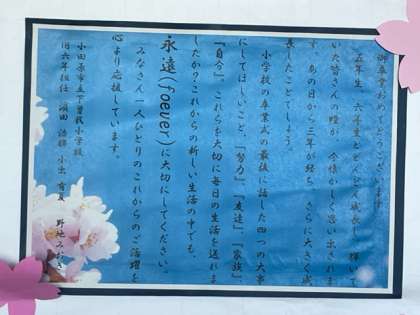 御卒業おめでとうございます
五年生、六年生とどんどん成長し、輝いて
い た皆さんの瞳が、今懐かしく思い出されま
す。あの日から三年が経ち、さらに大きく成
長したことでしょう。
小学校の卒業式の最後に話した四つの大事
にしてほしいこと、『努力』、『友達』、『家族』、
『自分』。これらを大切に毎日の生活を送れま
したか?これからの新しい生活の中でも、
永遠(foever)に大切にしてください。
みなさん一人ひとりのこれからのご活躍を
心より応援しています。
小田原市立下曽我小学校
旧六年担任